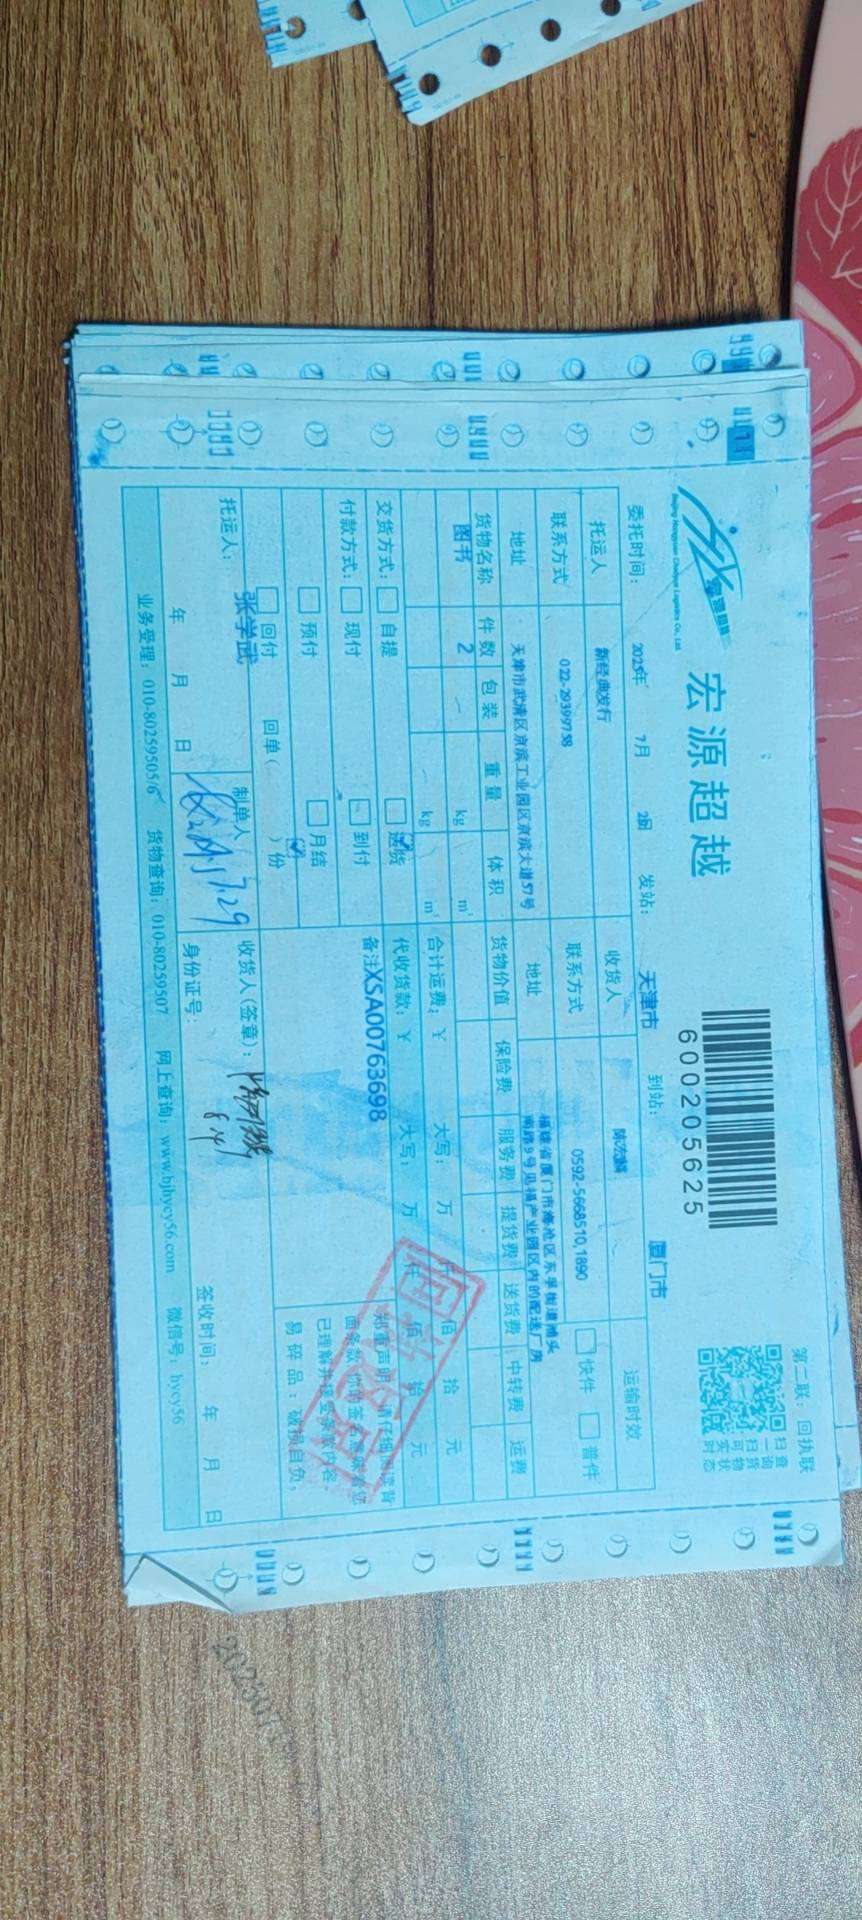 宏源超越
Beijing Hongyuan Chaoyue Logistics Co., Ltd.
600205625
第二联：回执联
扫一扫可实时
查询货物状态
委托时间： 2025年 7月 28日 发站： 天津市 到站： 厦门市
托运人 新经典发行 收货人 运输时效
联系方式 022-29399738 联系方式 0592-5668510,1890 快件 普件
地址 天津市武清区京滨工业园区京滨大道57号 地址 福建省厦门市海沧区东孚
南路9号 产业园区内的配送厂房
货物名称 件数 包装 重量 体积 货物价值 保险费 服务费 提货费 送货费 中转费 运费
图书 2 kg m³
kg m³ 合计运费：¥ 大写： 万 仟 佰 拾 元
交货方式： 自提 送货 代收货款：¥ 大写： 万 仟 佰 拾 元
付款方式： 现付 到付 备注XSA00763698
预付 月结
回付 回单（ ）份
郑重声明：请仔细阅读背
面条款，
已理解并接受条款内容
易碎品：破损自负。
托运人： 张学武 制单人 7.29 收货人（签章）：
年 月 日 身份证号： 签收时间： 年 月 日
业务受理：010-80259505/6 货物查询：010-80259507 网上查询：www.bjhycy56.com 微信号：hycy56